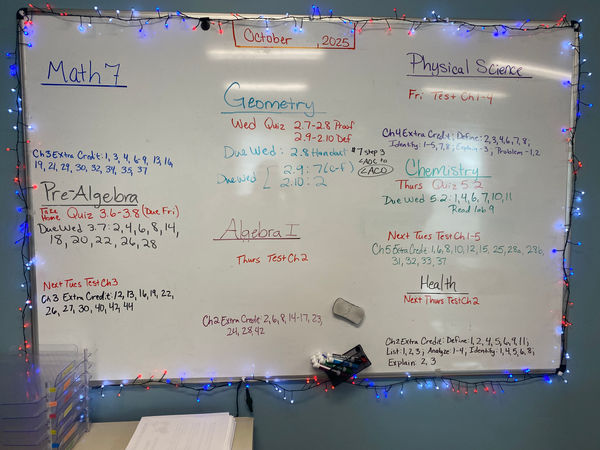 October , 2025
Math 7
Ch 3 Extra Credit: 1, 3, 4, 6-9, 13, 16,
19, 21, 29, 30, 32, 34, 35, 37
Pre-Algebra
Take Home Quiz 3.6-3.8 (Due Fri)
Due Wed 3.7: 2, 4, 6, 8, 14,
18, 20, 22, 26, 28
Next Tues Test Ch 3
Ch 3 Extra Credit: 12, 13, 16, 19, 22,
26, 27, 30, 40, 42, 44
Geometry
Wed Quiz 2.7-2.8 Proof
2.9-2.10 Def
Due Wed: 2.8 Handout #7 step 3
∠AOC to
∠AOD
Due Wed [ 2.9: 7(c-f)
2.10: 2
Algebra I
Thurs Test Ch 2
Ch 2 Extra Credit: 2, 6, 8, 14-17, 23,
24, 28, 42
Physical Science
Fri Test Ch 1-4
Ch 4 Extra Credit; Define: 2, 3, 4, 6, 7, 8;
Identify: 1-5, 7, 8; Explain-3; Problem-1, 2
Chemistry
Thurs Quiz 5.2
Due Wed 5.2: 1, 4, 6, 7, 10, 11
Read Lab 9
Next Tues Test Ch 1-5
Ch 5 Extra Credit: 1, 6, 8, 10, 12, 15, 25, 28a, 28b,
31, 32, 33, 37
Health
Next Thurs Test Ch 2
Ch 2 Extra Credit: Define: 1, 2, 4, 5, 6, 9, 11;
List: 1, 2, 3; Analyze: 1-4; Identify: 1, 4, 5, 6, 8;
Explain: 2, 3